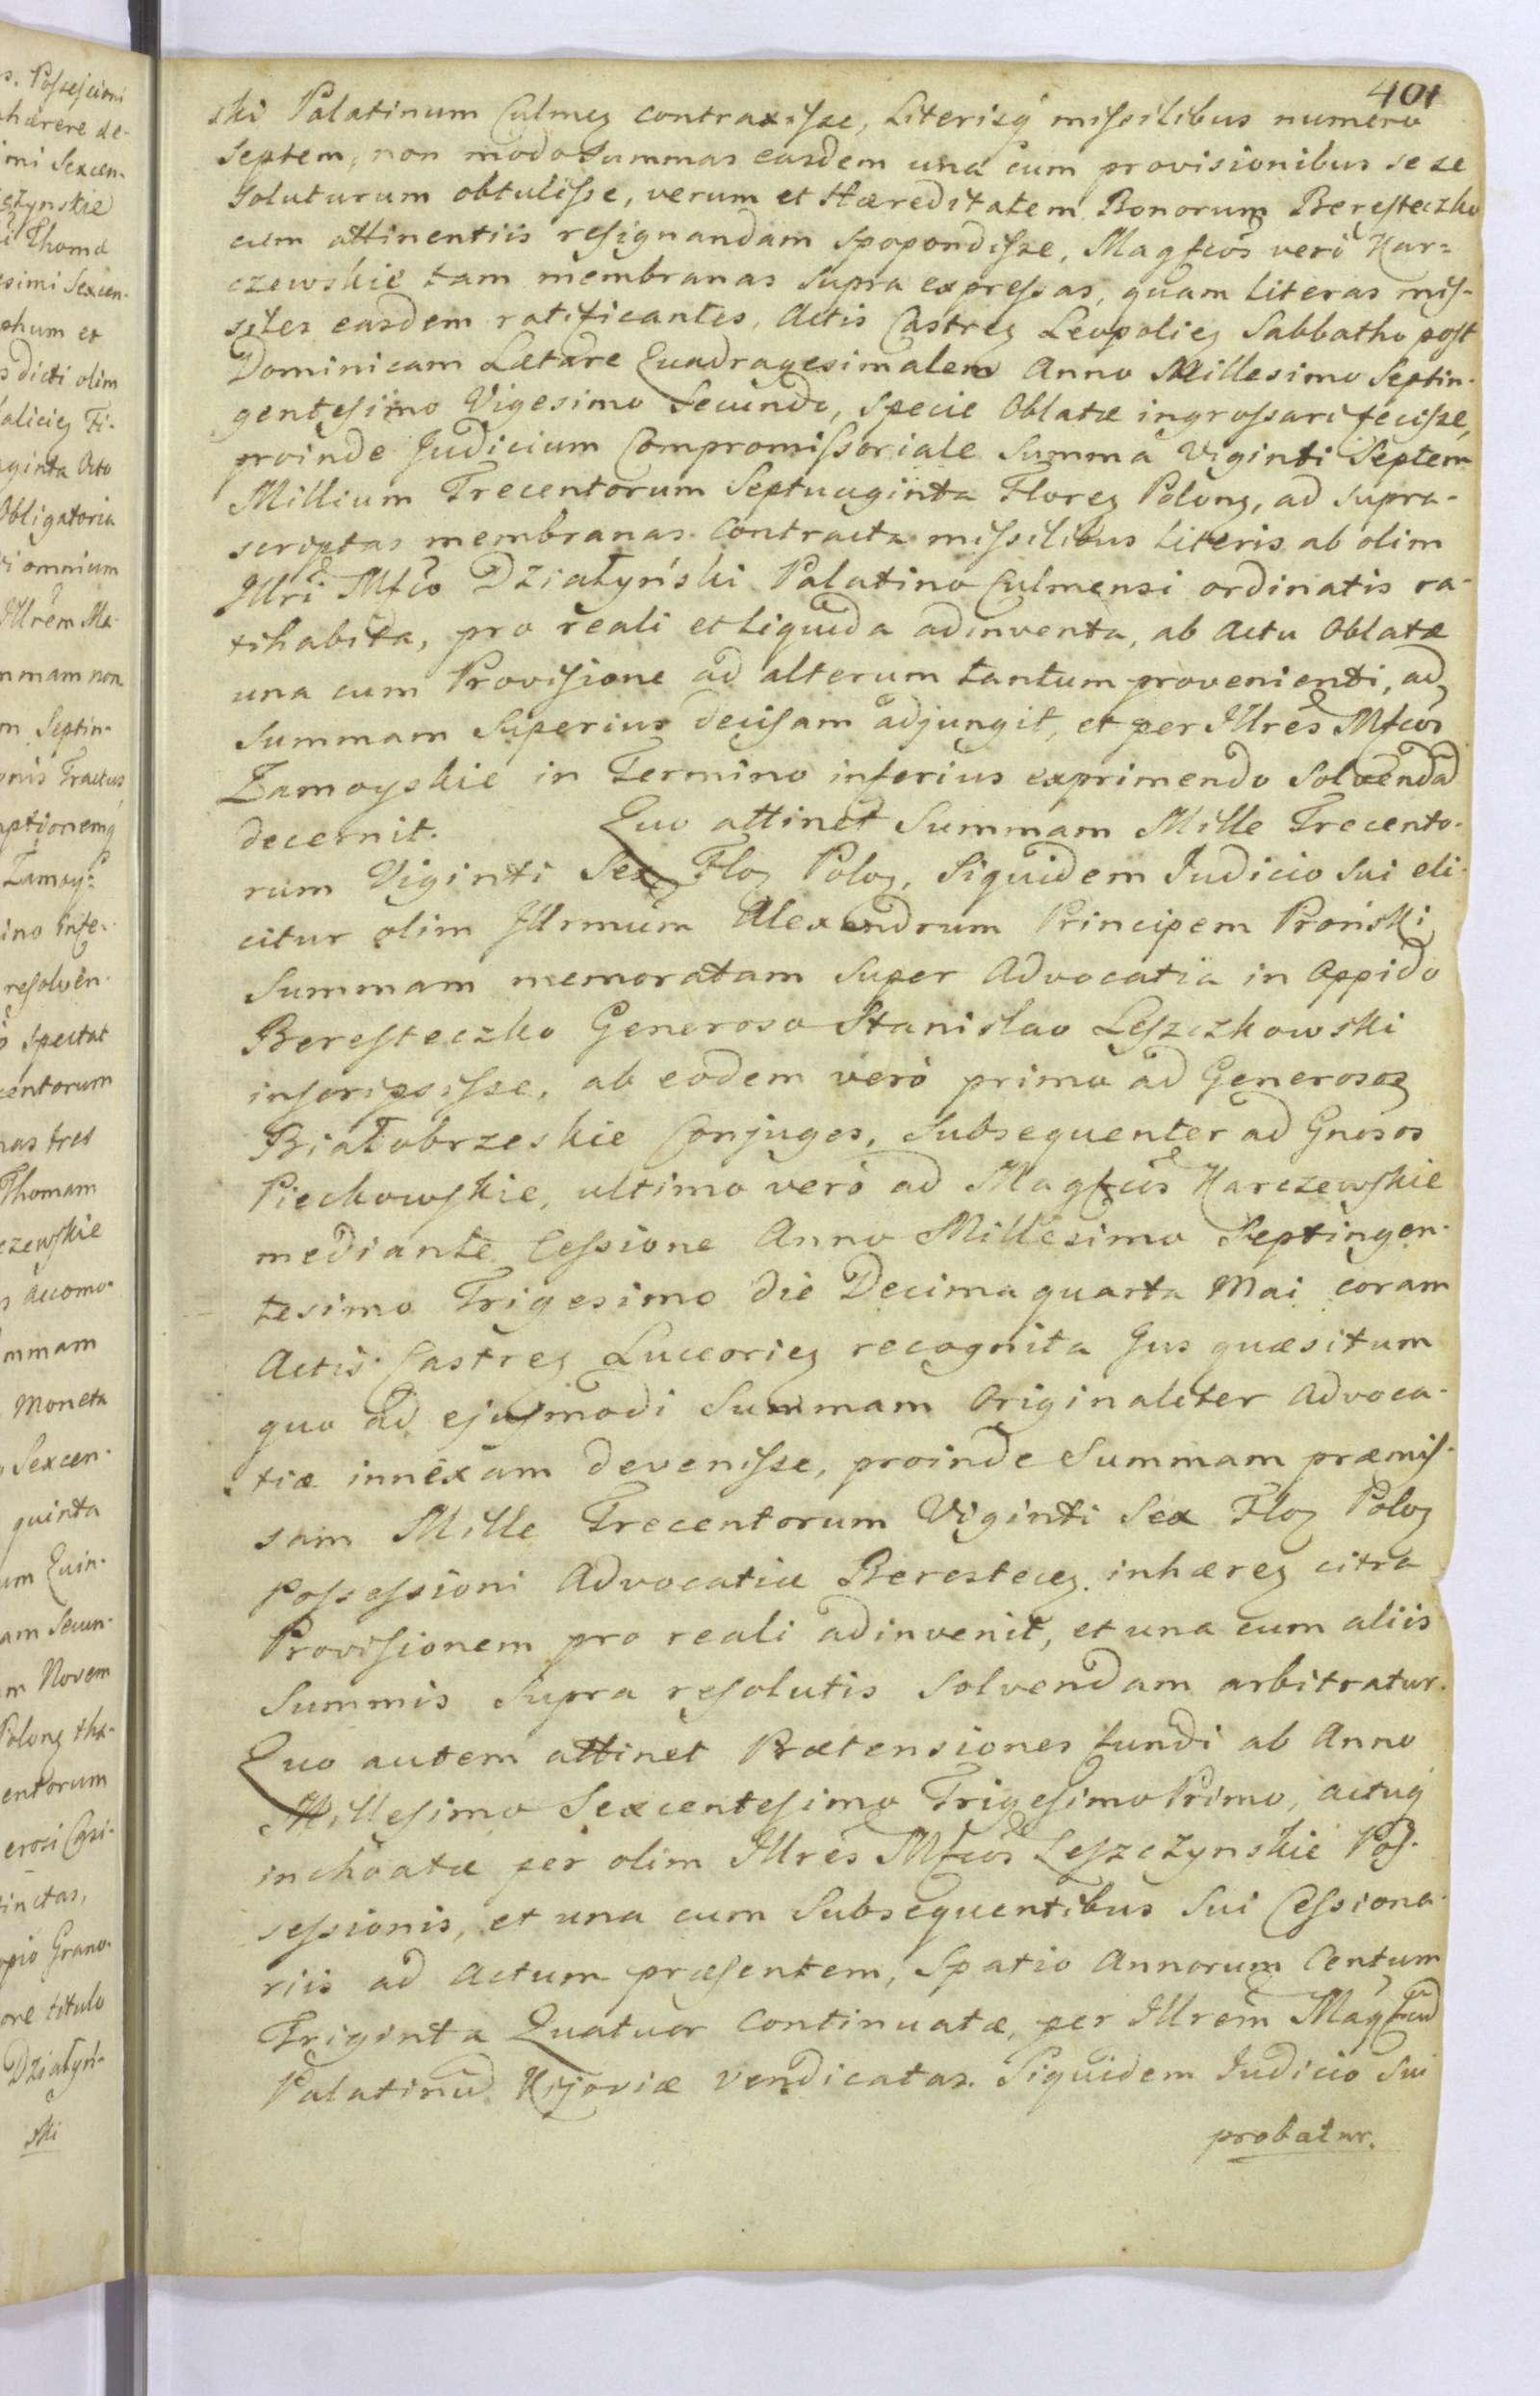 401
ski Palatinum Culmeȝ contraxisse, Literisq missilibus numero
Septem, non modo summas easdem una cum provisionibus se se
soluturum obtulisse, verum et Hæreditatem Bonorum Beresteczko
cum attinentiis resignandam spopondisse, Magfcos verò Kar=
czewskie tam membranas supra expressas, quam literas mis-
siles easdem ratificantes, Actis Castreȝ Leopolieȝ Sabbatho post
Dominicam Lætare Quadragesimalem Anno Millesimo Septin-
gentesimo Vigesimo Secundo, specie Oblatæ ingrossari fecisse,
proinde Judicium Compromissoriale Summa Viginti Septem
Millium Trecentorum Septuaginta Floreȝ Poloneȝ, ad supra-
scriptas membranas contracta missilibus literis ab olim
Illri Mfco Działyński Palatino Culmensi ordinatis ra-
tihabita, pro reali et liquida adinventa, ab Actu Oblatæ
una cum Provisione ad alterum tantum provenienti, ad
Summam superius decisam adjungit, et per Illres Mfcos
Zamoyskie in Termino inferius exprimendo solvendã
decernit. Quo attinet Summam Mille Trecento-
rum Viginti Sex Floȝ Poloȝ, Siquidem Judicio sui eli-
citur olim Illrmum Alexandrum Principem Proński
Summam memoratam super Advocatia in Oppido
Beresteczko Generoso Stanislao Leszczkowski
inscripsisse, ab eodem verò primo ad Generosos
Białobrzeskie Conjuges, subsequenter ad Gnosos
Piechowskie, ultimo verò ad Magfcos Karczewskie
mediante Cessione Anno Millesimo Septingen-
tesimo Trigesimo die Decima quarta Mai coram
Actis Castreȝ Luceorieȝ recognita Jus quæsitum
quo ad ejusmodi Summam Originaliter Advoca-
tiæ innexam devenisse, proinde Summam præmis-
sam Mille Trecentorum Viginti Sex Floȝ Poloȝ
Possessioni Advocatiæ Beresteceȝ inhæreȝ citra
Provisionem pro reali adinvenit, et una cum aliis
Summis supra resolutis solvendam arbitratur.
Quo autem attinet Prætensiones fundi ab Anno
Millesimo Sexcentesimo Trigesimo Primo, actuq
inchoatæ per olim Illres Mfcos Leszczynskie Pos-
sessionis, et una cum subsequentibus sui Cessiona-
riis ad Actum præsentem, Spatio Annorum Centum
Triginta Quatuor continuatæ, per Illrem Magfcũ
Palatinũ Kijoviæ vendicatas. Siquidem Judicio sui
probatur.